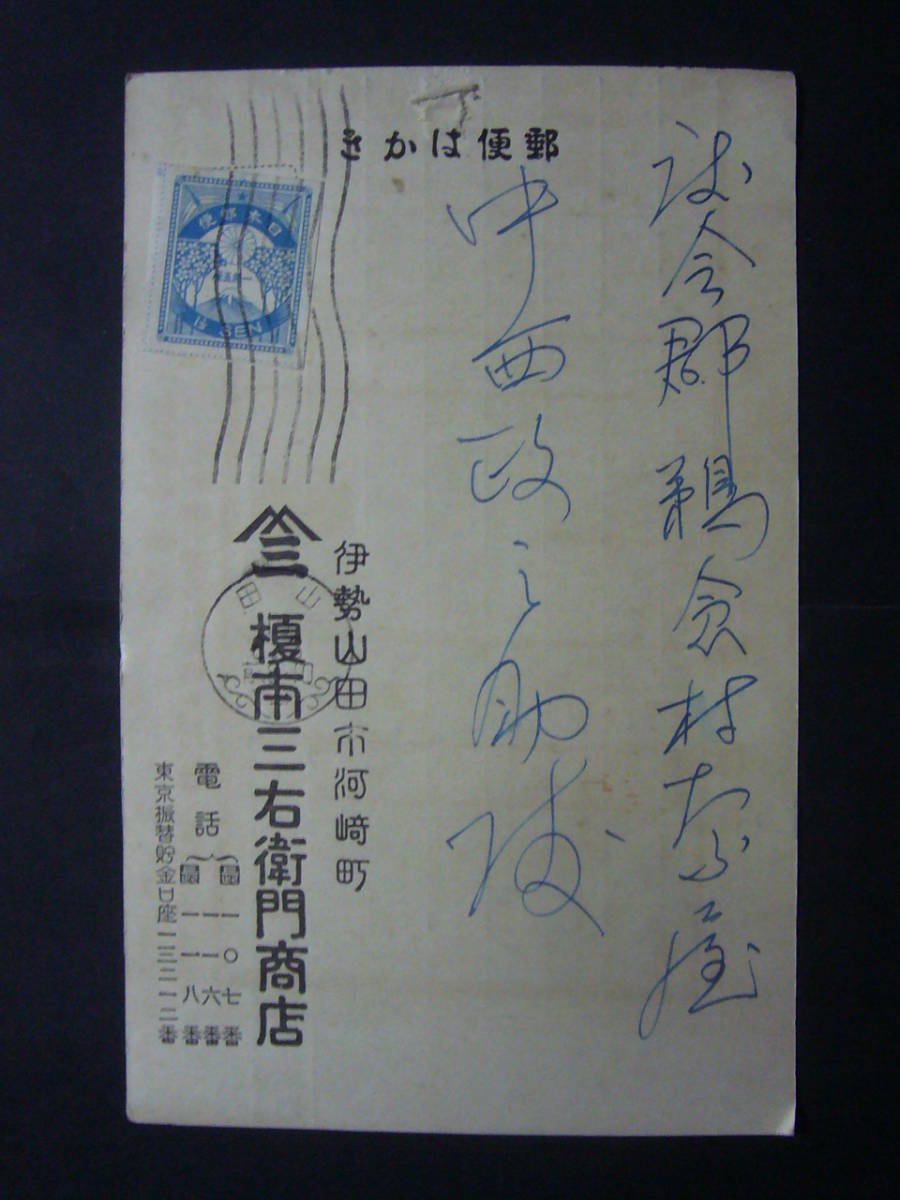 郵便はかき
渡会郡鵜倉村奈屋
中西政之助様
日本郵便
SEN
山田
伊勢山田市河﨑町
三 榎本三右衛門商店
電話 長一〇七番
一一六番
長一一八番
東京振替貯金口座一三二一二番